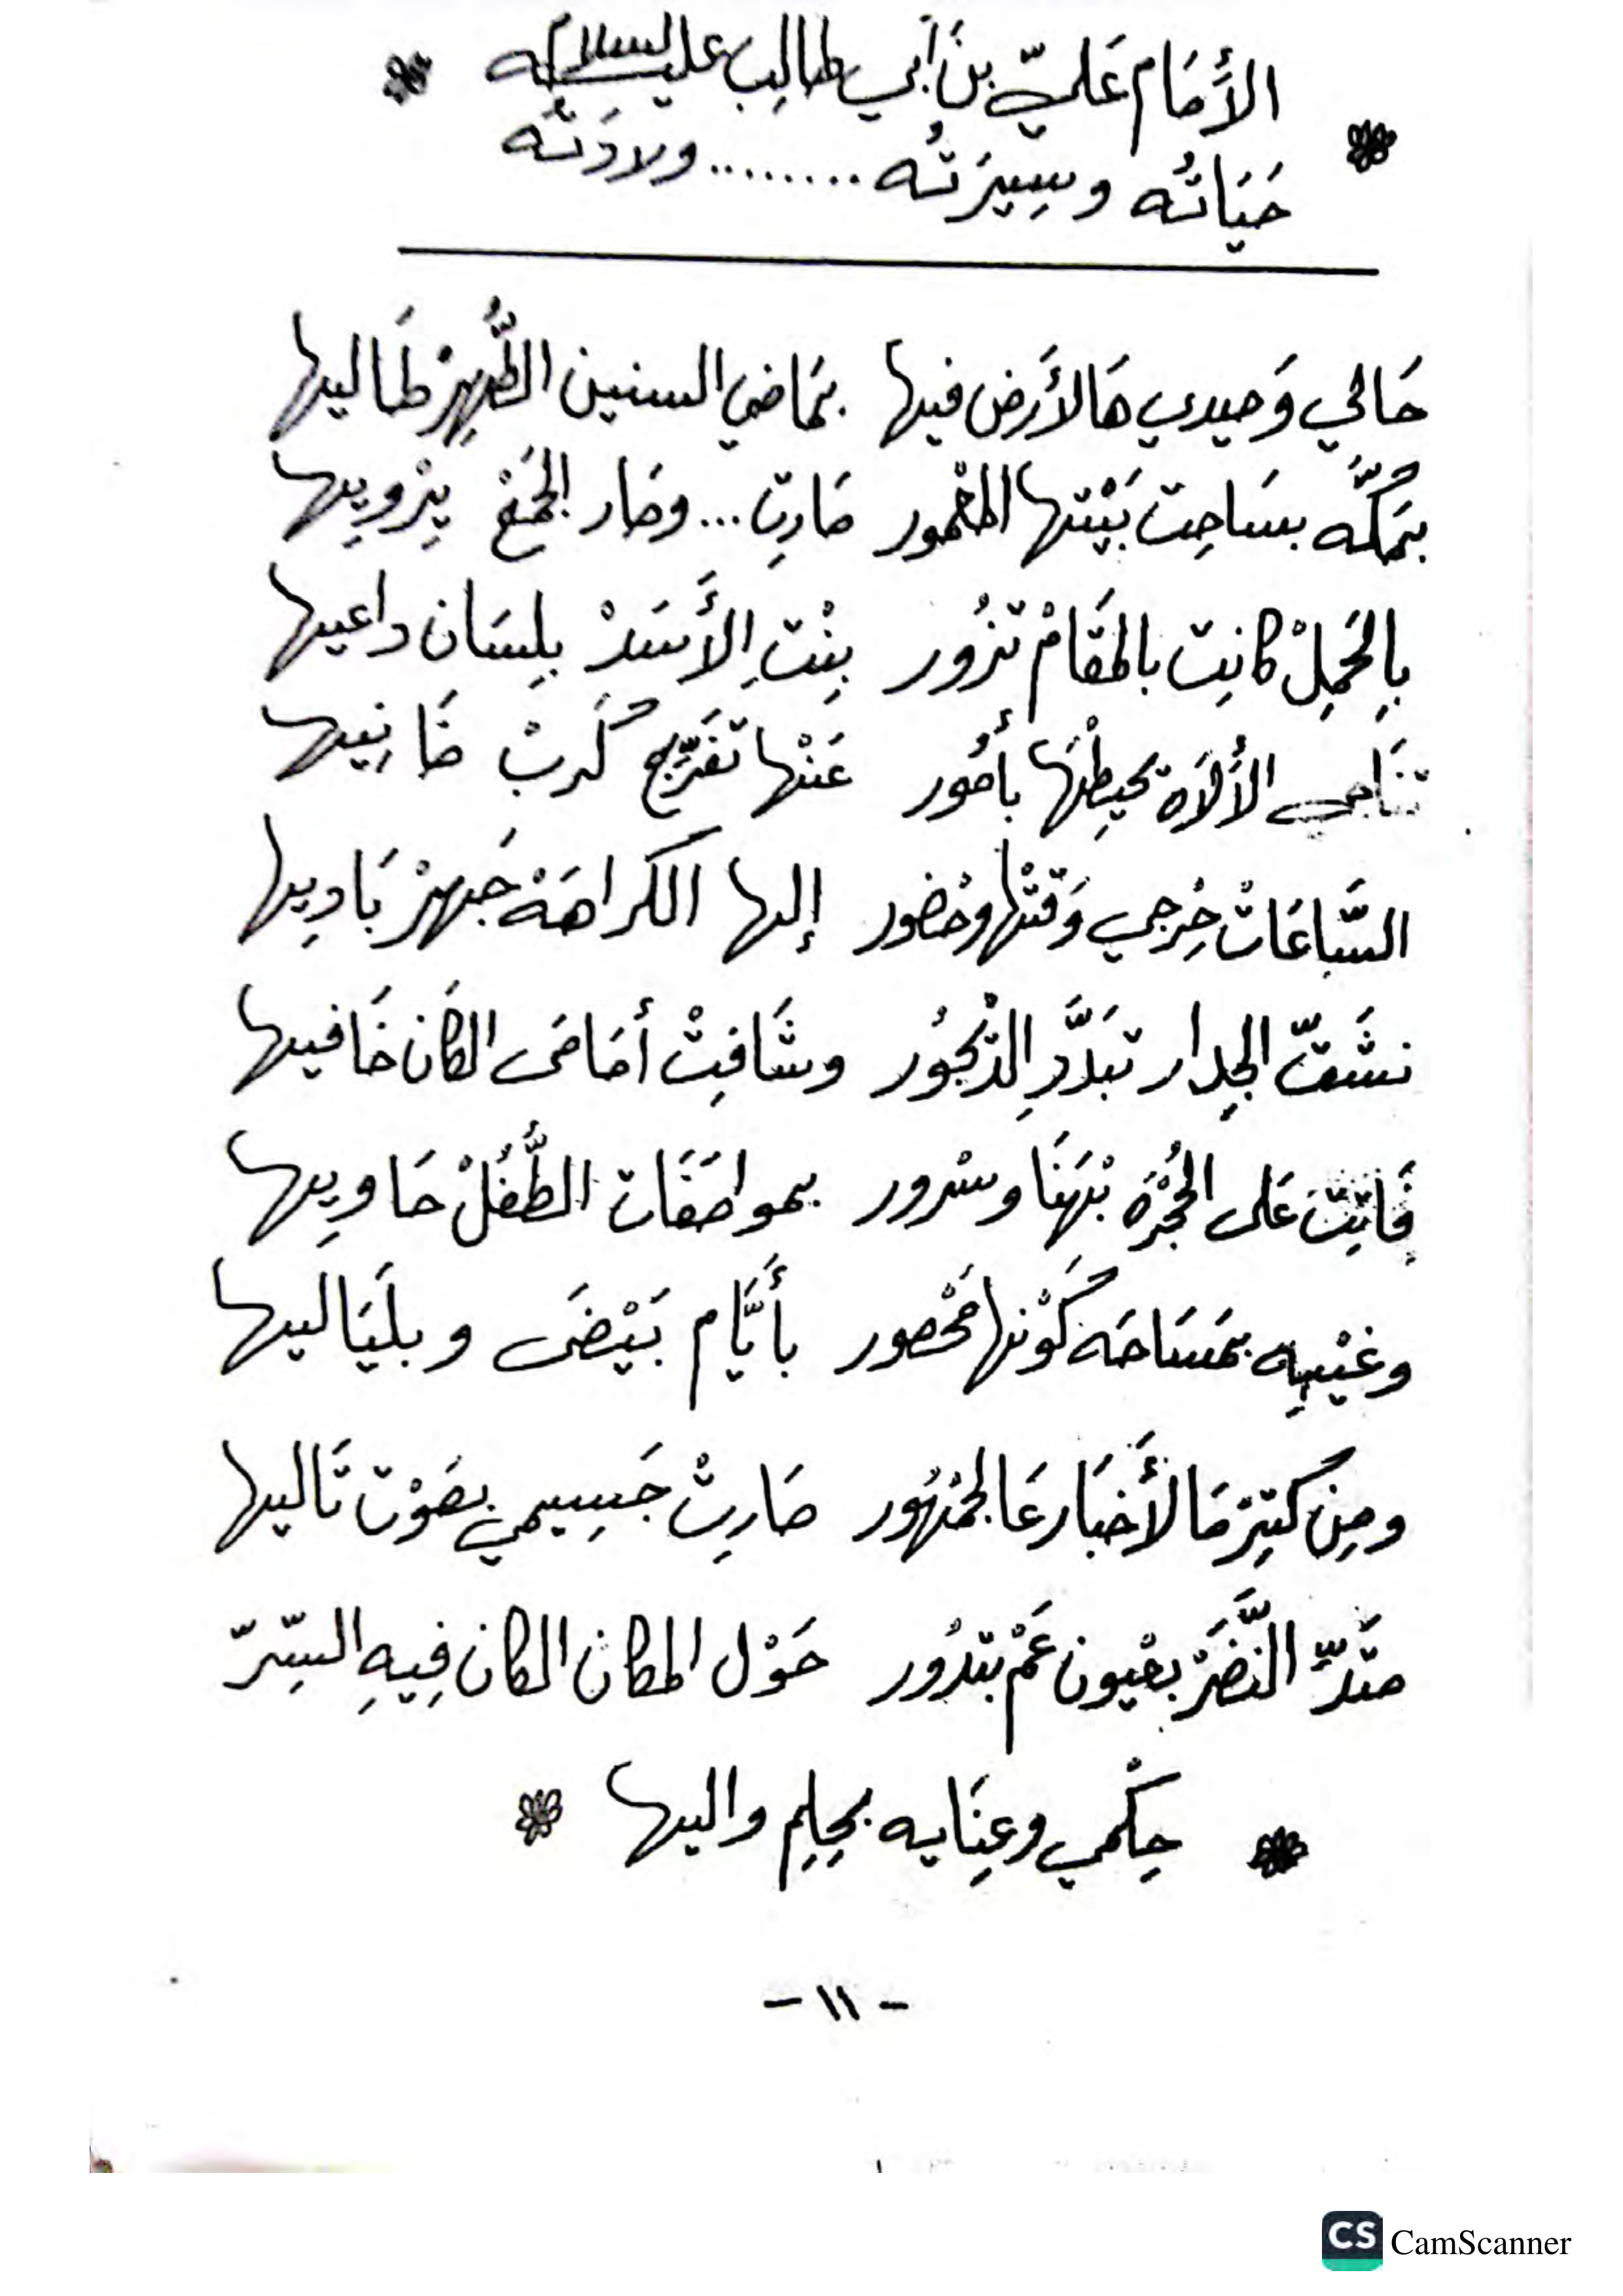 الأَمَام عَليّ بنَ أبي طالِب عليه السلام
حَيَاتُه وسِيرَتُه ......... وِلادَتُه
حَالي وَحيدي هَالأَرض فيها بمَاضي السنين الطُّهِرْ طَاليها
بمَكَّه بسَاحِت بَيْتها المَعْمور صَارِت ... وصَار الجَمِعْ يِرْوِيها
بِالحَمِلْ كانِت بالمَقَامْ تزُور بِنْتِ الأَسَدْ بلِسَان داعيها
تنَاجي الأَلَاه تحيِطْهَا بأمُور عَنْها تفَرِّج كُربْ ضَانِيها
السَّاعَاتْ حِرْجي وَقتْها وحْضور إلها الكراهَهْ جَهِرْ بَادِيها
نشَقّ الجِدار تبَدَّدِ الدَّيْجُور وشَافِتْ أمَامَى الكَان خَافيها
فَاتِتْ عَلى الحُجْرَه بْهَنَا وسْرور بمواصَفَات الطُّفُلْ حَاوِيها
وغَيْبِه بمَسَاحَه كَوْنها مَحْصور بأَيَّام بَيْضَى وبلَيَاليها
ومِن كتِرْ مَا لأَخبَار عَالجَمْهُور صَارِتْ جَسِيمي بصَوْت تَاليها
متَدِّ النَّضَرْ بعْيون عَمْ بتدُور حَوْل المكان الكان فِيهِ السِّرّ
حِكْمي وعِنَايه بحِلِم واليها
- ١١ -
CS CamScanner